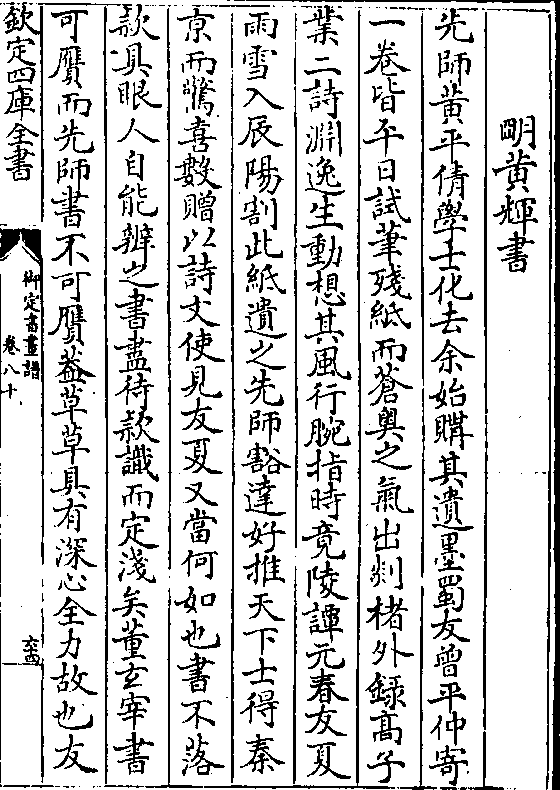 明黄輝書
先師黄平倩學士化去余始購其遺墨蜀友曾平仲寄
一卷皆平日試筆殘紙而蒼奥之氣出剡楮外録高子
業二詩淵逸生動想其風行腕指時竟陵譚元春友夏
雨雪入辰陽割此紙遺之先師豁達好推天下士得秦
京而驚喜數贈以詩文使見友夏又當何如也書不落
款具眼人自能辨之書盡待款識而定淺矣董玄宰書
可贋而先師書不可贋葢草草具有深心全力故也友
欽定四庫全書
御定書畫譜
卷八十